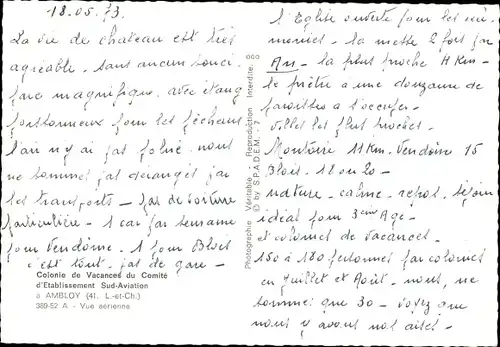 18.05.73.
La vie de chateau est très
agréable. sans aucun souci.
parc magnifique. avec étang
poissonneux pour les pêcheurs
l'air n'y est pas pollué. nous
ne sommes pas dérangés par
les transports - pas de voiture
particulière - 1 car par semaine
pour Vendôme. 1 pour Blois
c'est tout. pas de gare -
Colonie de Vacances du Comité
d'Etablissement Sud-Aviation
à AMBLOY (41. L.-et-Ch.)
389-52 A - Vue aérienne
Photographie Véritable - Reproduction Interdite.
© by S.P.A.D.E.M. - 7
l'Eglise ouverte pour les céré
monies - la messe 2 fois par
An - la plus proche 4 Km -
le prêtre a une douzaine de
paroisses à s'occuper -
villes les plus proches -
Montoire 11 Km. Vendôme 15
Blois
nature - calme. repos. séjour
idéal pour 3ème Age -
et colonies de vacances.
150 à 180 personnes par colonies
en Juillet et Août - nous, ne
sommes que 30 - voyez que
nous y avons nos aises -